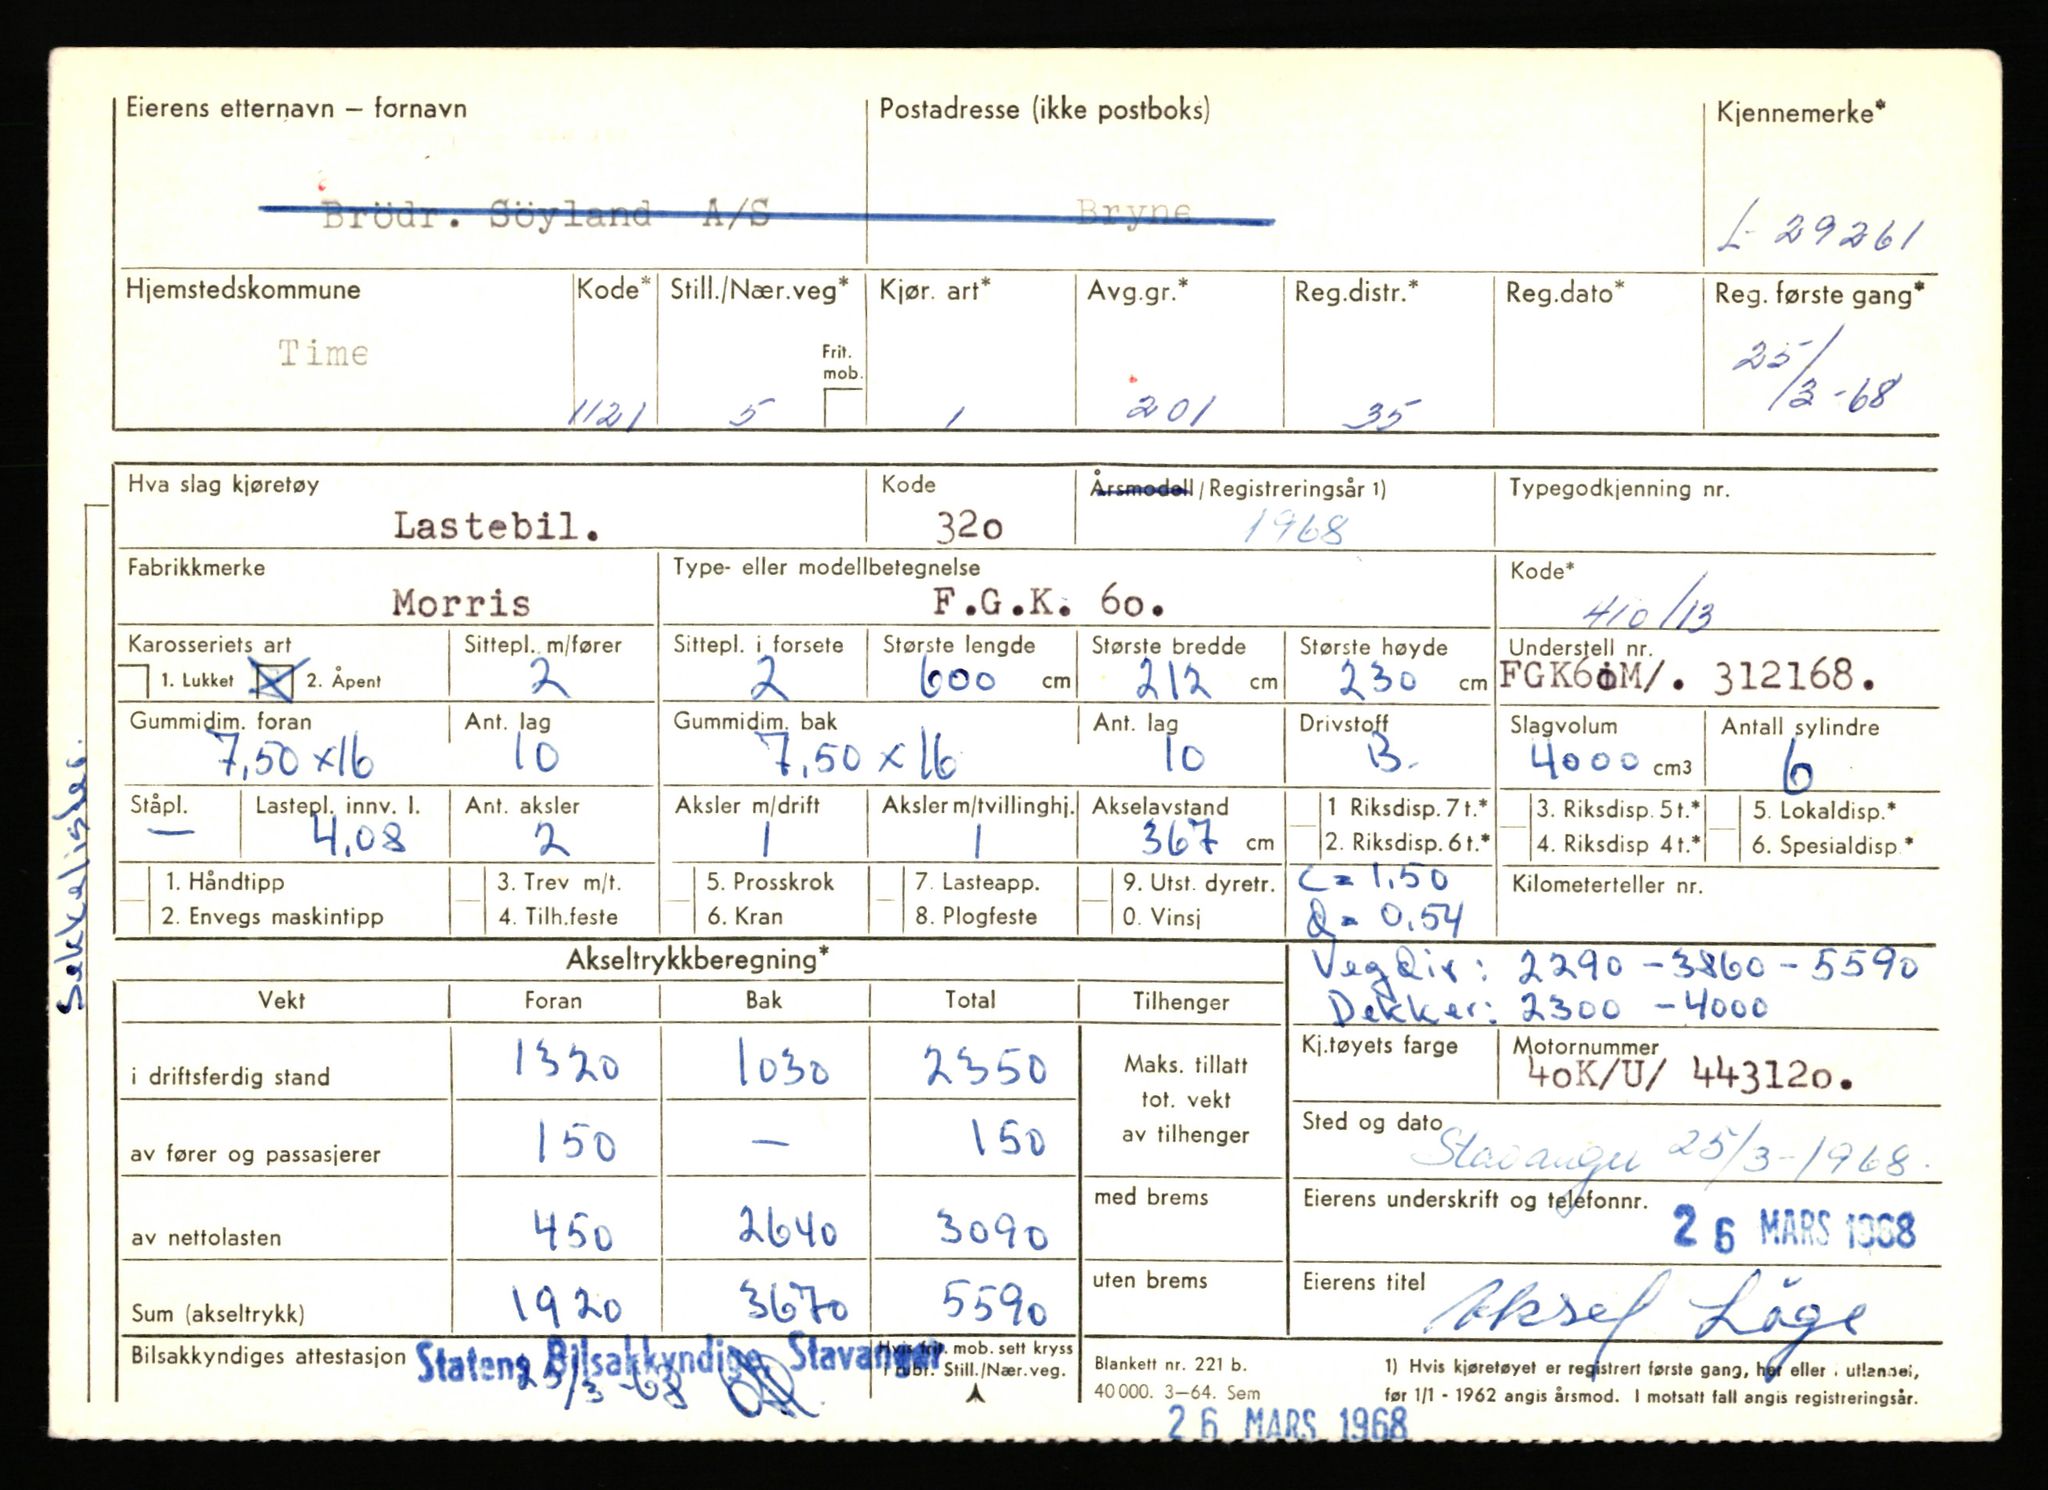 Eierens etternavn – fornavn Postadresse (ikke postboks) Kjennemerke*
Brödr. Söyland A/S Bryne L- 29261
Hjemstedskommune Kode* Still./Nær.veg* Kjør. art* Avg.gr.* Reg.distr.* Reg.dato* Reg. første gang*
Time 1121 5 Frit. mob. 1 201 35 25/3-68
Hva slag kjøretøy Kode Årsmodell / Registreringsår 1) Typegodkjenning nr.
Lastebil. 320 1968
Fabrikkmerke Type- eller modellbetegnelse Kode*
Morris F.G.K. 60. 410/13
Karosseriets art Sittepl. m/fører Sittepl. i forsete Største lengde Største bredde Største høyde Understell nr.
1. Lukket 2. Åpent 2 2 600 cm 212 cm 230 cm FGK60M/. 312168.
Gummidim. foran Ant. lag Gummidim. bak Ant. lag Drivstoff Slagvolum Antall sylindre
7,50 x 16 10 7,50 x 16 10 B. 4000 cm3 6
Ståpl. Lastepl. innv. l. Ant. aksler Aksler m/drift Aksler m/tvillinghj. Akselavstand 1 Riksdisp. 7 t.* 3. Riksdisp. 5 t.* 5. Lokaldisp.*
— 4,08 2 1 1 367 cm 2. Riksdisp. 6 t.* 4. Riksdisp 4 t.* 6. Spesialdisp.*
1. Håndtipp 3. Trev m/t. 5. Prosskrok 7. Lasteapp. 9. Utst. dyretr. C = 1,50 Kilometerteller nr.
2. Envegs maskintipp 4. Tilh.feste 6. Kran 8. Plogfeste 0. Vinsj Q = 0,54
Akseltrykkberegning* Vegdir: 2290 – 3860 – 5590
Vekt Foran Bak Total Tilhenger Dekker: 2300 – 4000
i driftsferdig stand 1320 1030 2350 Maks. tillatt tot. vekt av tilhenger Kj.tøyets farge Motornummer
40K/U/ 443120.
av fører og passasjerer 150 — 150 Sted og dato
Stavanger 25/3-1968.
av nettolasten 450 2640 3090 med brems Eierens underskrift og telefonnr.
26 MARS 1968
Sum (akseltrykk) 1920 3670 5590 uten brems Eierens titel
Aksel Låge
Bilsakkyndiges attestasjon Statens Bilsakkyndige Stavanger Hvis frit. mob. sett kryss i rubr. Still./Nær.veg.
25/3-68
Blankett nr. 221 b.
40 000. 3–64. Sem
1) Hvis kjøretøyet er registrert første gang, her eller i utlandet,
før 1/1 - 1962 angis årsmod. I motsatt fall angis registreringsår.
26 MARS 1968